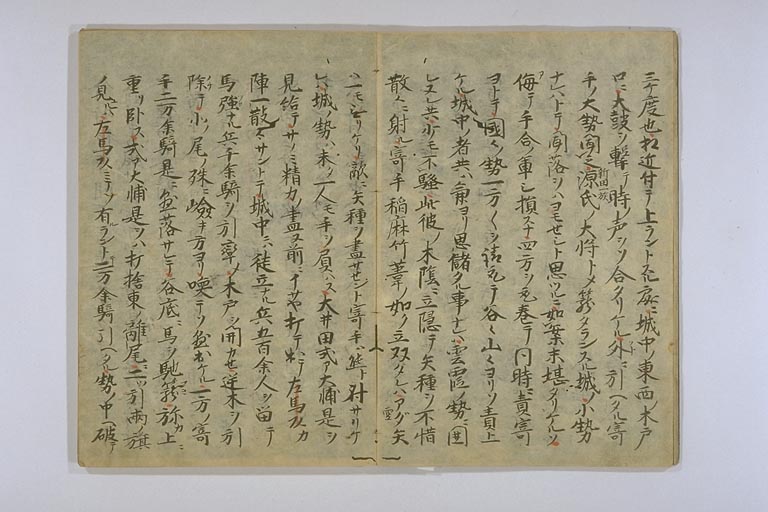 三ケ度也相近付テ上ラントスル處ニ城中ノ東西ノ木戸
口ニ大鼓ヲ撃テ時ノ声ヲソ合タリケル外ニ引ヘタル寄
手ノ大勢聞之源氏ノ大将トメ籠タランスル城ノ小勢
新田一族
ナレハトテ聞落シハヨモセシト思ツルニ如案未堪タリケルソ
侮テ手合ノ軍シ損スナ四方ヲ毛巻テ同時ニ責
ヨトテ國々勢一方ツヽ請取テ谷々山々ヨリソ責上
ケル城中ノ者共ハ兼ヨリ思儲タル事ナレハ雲霞ノ勢ニ囲
レヌレ共少モ不騒此彼ノ木陰ニ立隠テ矢種ヲ不惜
散々ニ射ル寄手稲麻竹葦ノ如ク立双タレハアダ矢
ハ一モ無リケリ敵ニ矢種ヲ盡サセント寄手ハ態ト射サリケ
レハ城ノ勢ハ未一人モ手ヲ負ハス大井田式ア大輔是ヲ
見給テサノミ精力ノ盡ヌ前ニイサヤ打テ出テ左馬頭カ
陣一散シサントテ城中ニハ徒立ナル兵五百余人ヲ留テ
馬強ナル兵千余騎ヲ引率メ木戸ヲ開カセ逆木ヲ引
除テ小ノ尾ノ殊ニ嶮キ方ヨリ喚テソ蒐出ケル二方ノ寄
手二万余騎是ニ蒐落サレテ谷底ニ馬ヲ馳籠弥カ上ニ
重リ臥ス式ア大輔是ヲハ打捨東ノ離尾ニ二引両ノ旗
ノ見ハ左馬頭ニテソ有ラント二万余騎引ヘタル勢ノ中ヘ破テ